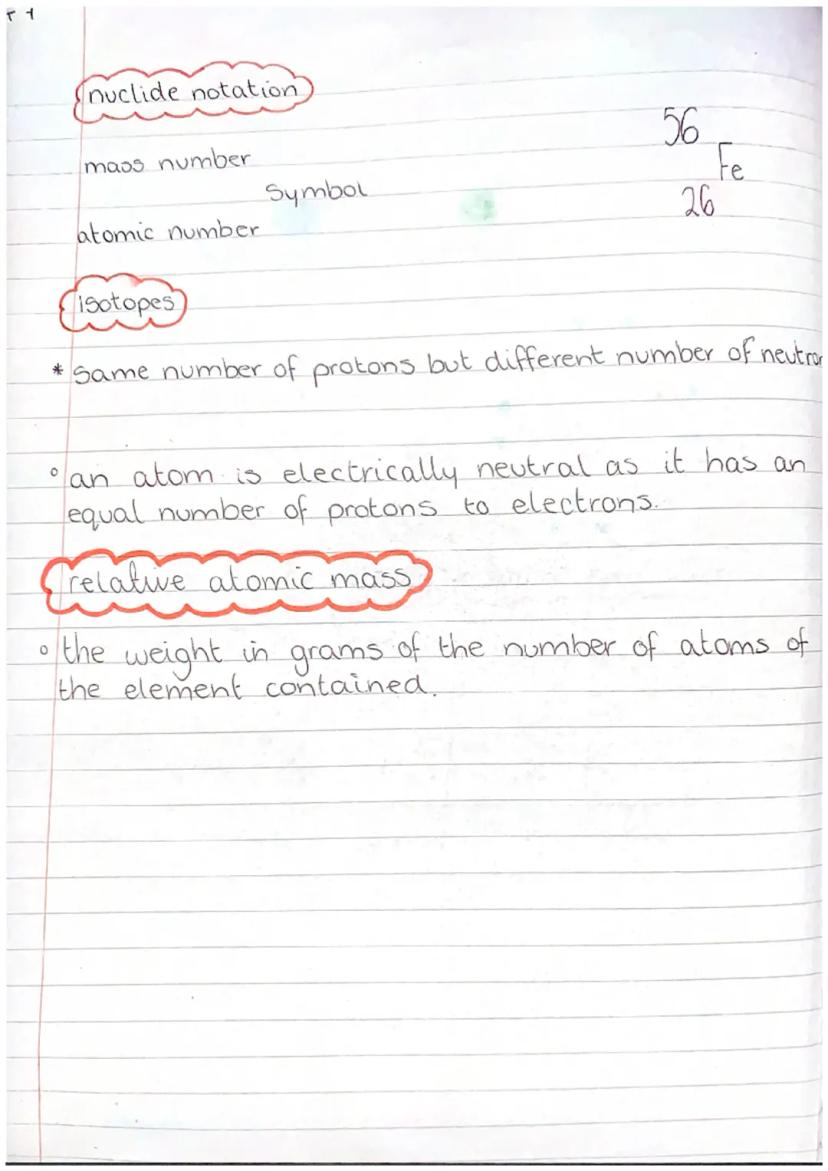 nuclide notation
56
mass number
Fe
Symbol
26
atomic number
isotopes
* same number of protons but different number of neutron
° an atom is electrically neutral as it has an
equal number of protons to electrons.
relative atomic mass
° the weight in grams of the number of atoms of
the element contained.